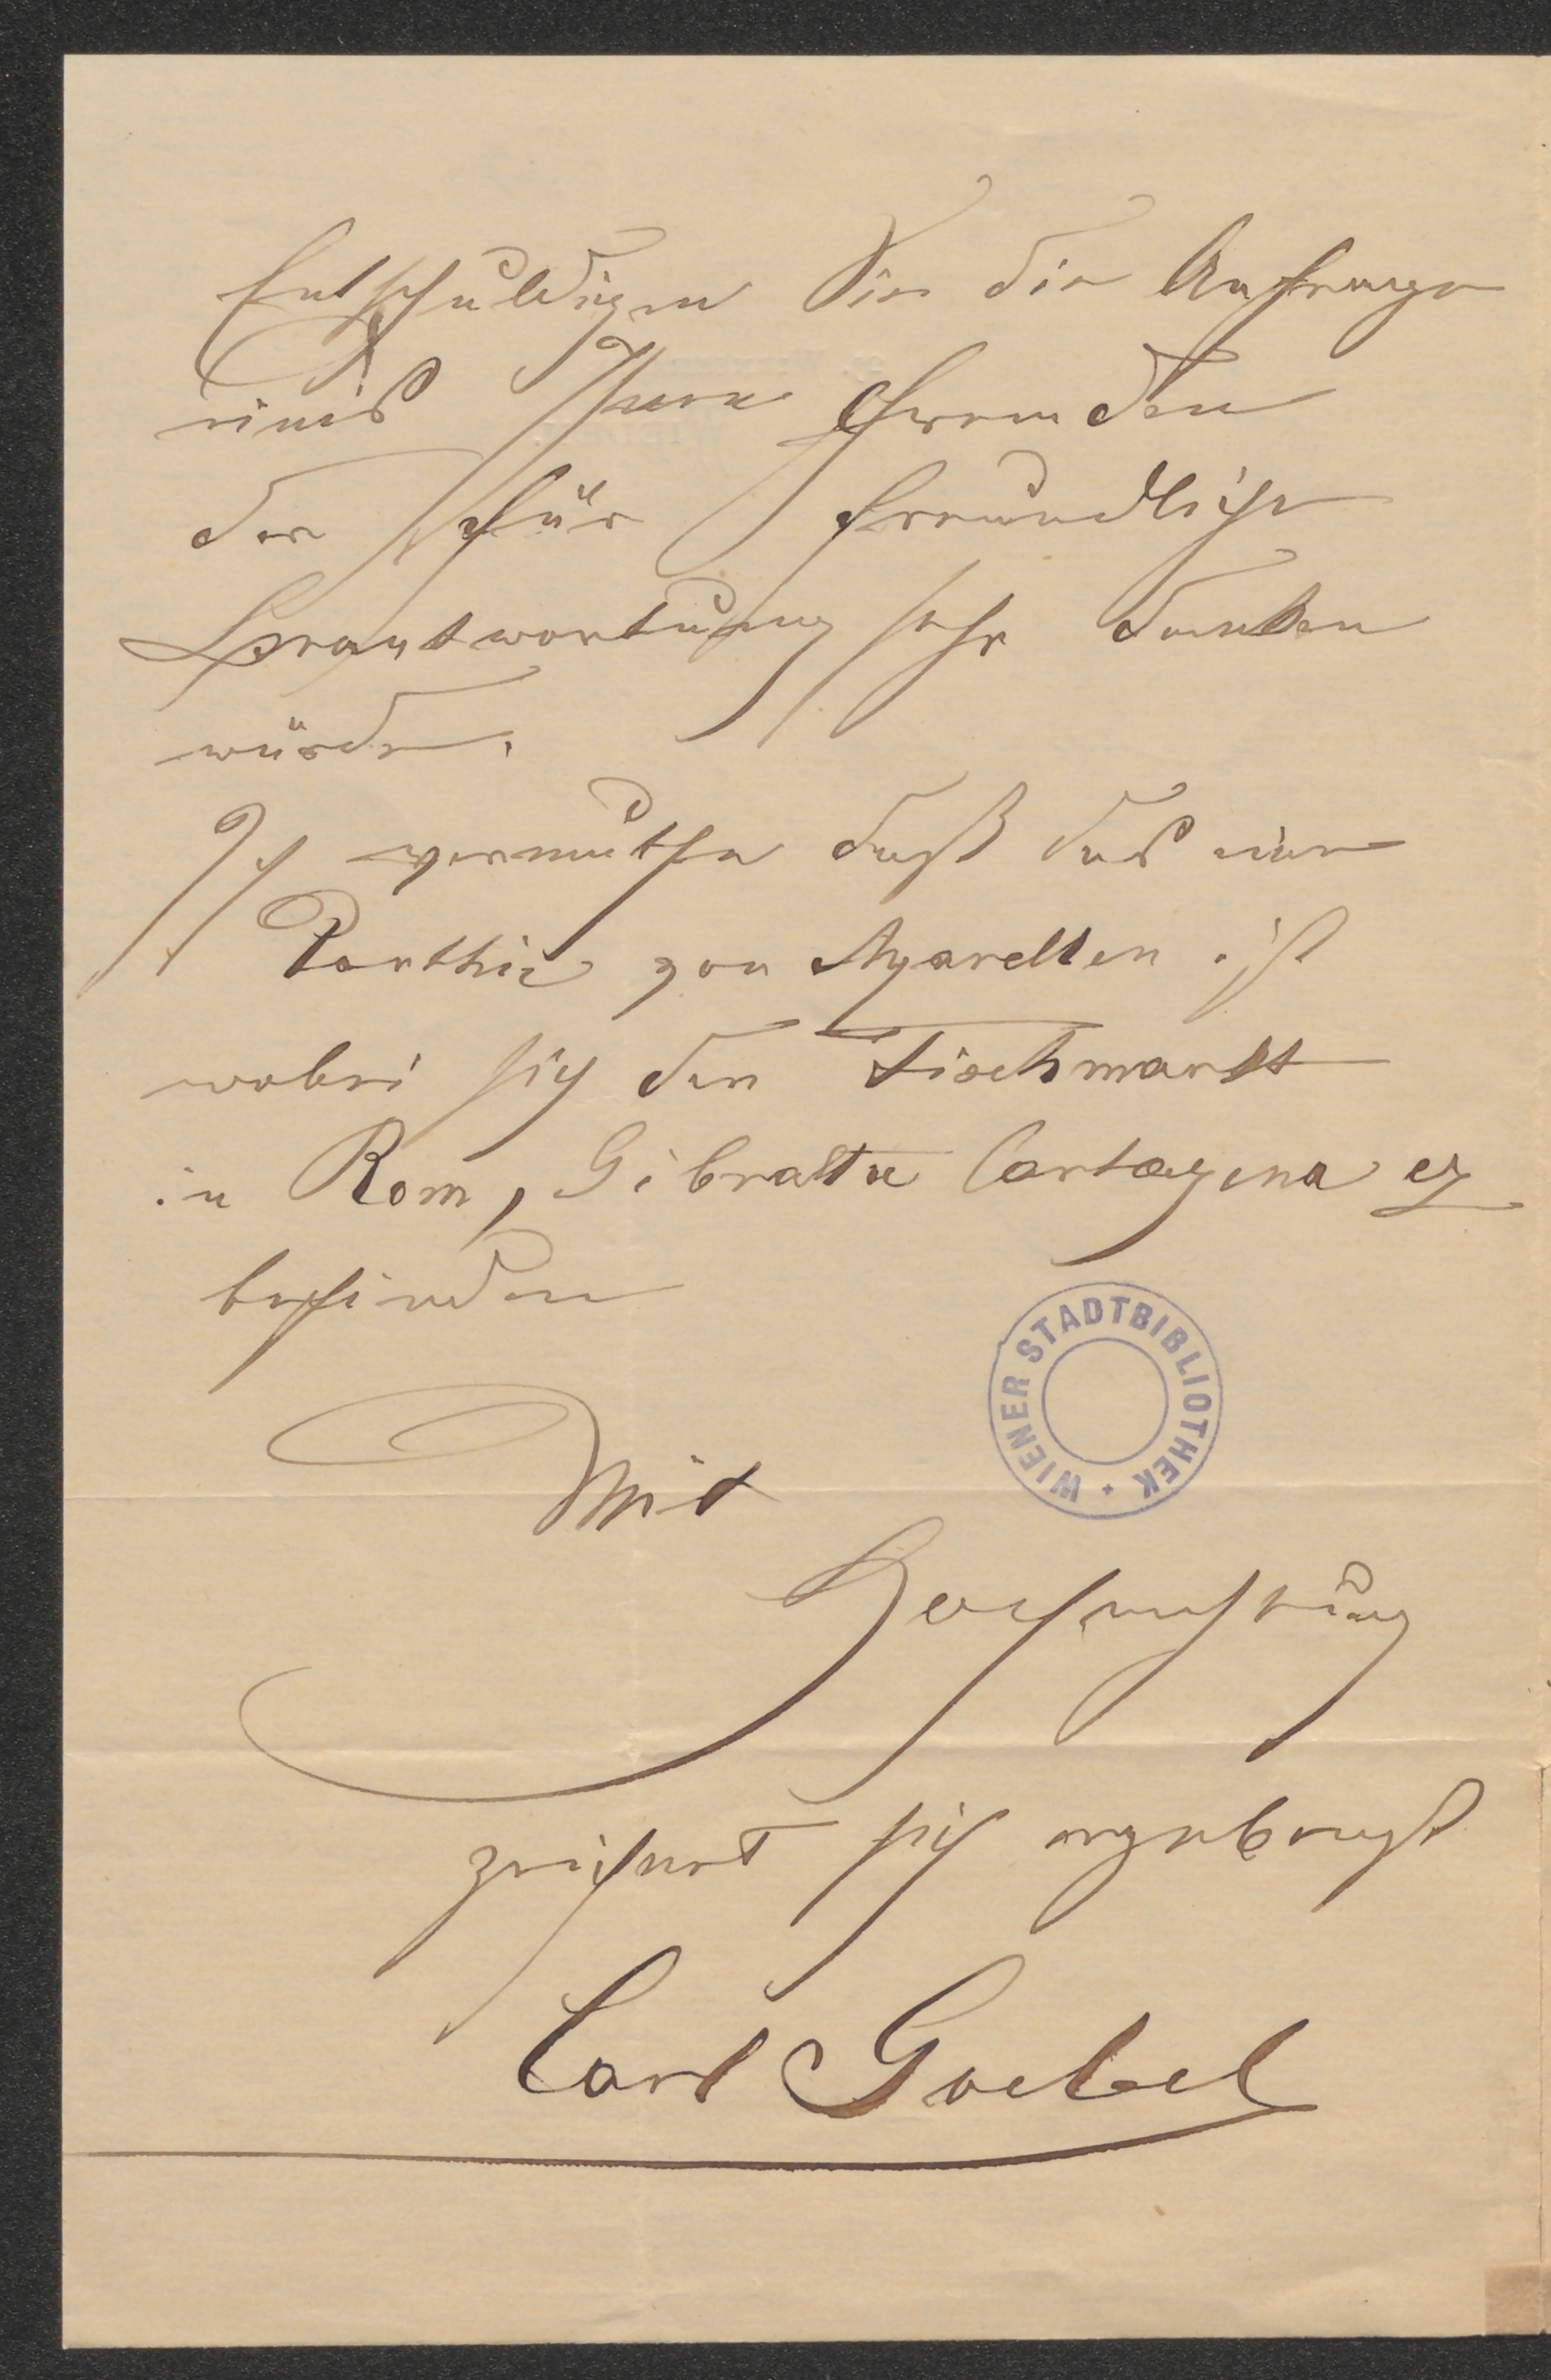 Entschuldigen Sie die Anfrage
eines Ihnen Fremden
der für freundliche
Beantwortung sehr danken
würde.
Ich vermuthe daß das eine
Parthie von Aqarellen ist
wobei sich der Fischmarkt
in Rom, Gibraltar Cartagena etz
befinden
Mit
Hochachtung
zeichnet sich ergebenst
Carl Goebel
WIENER STADTBIBLIOTHEK